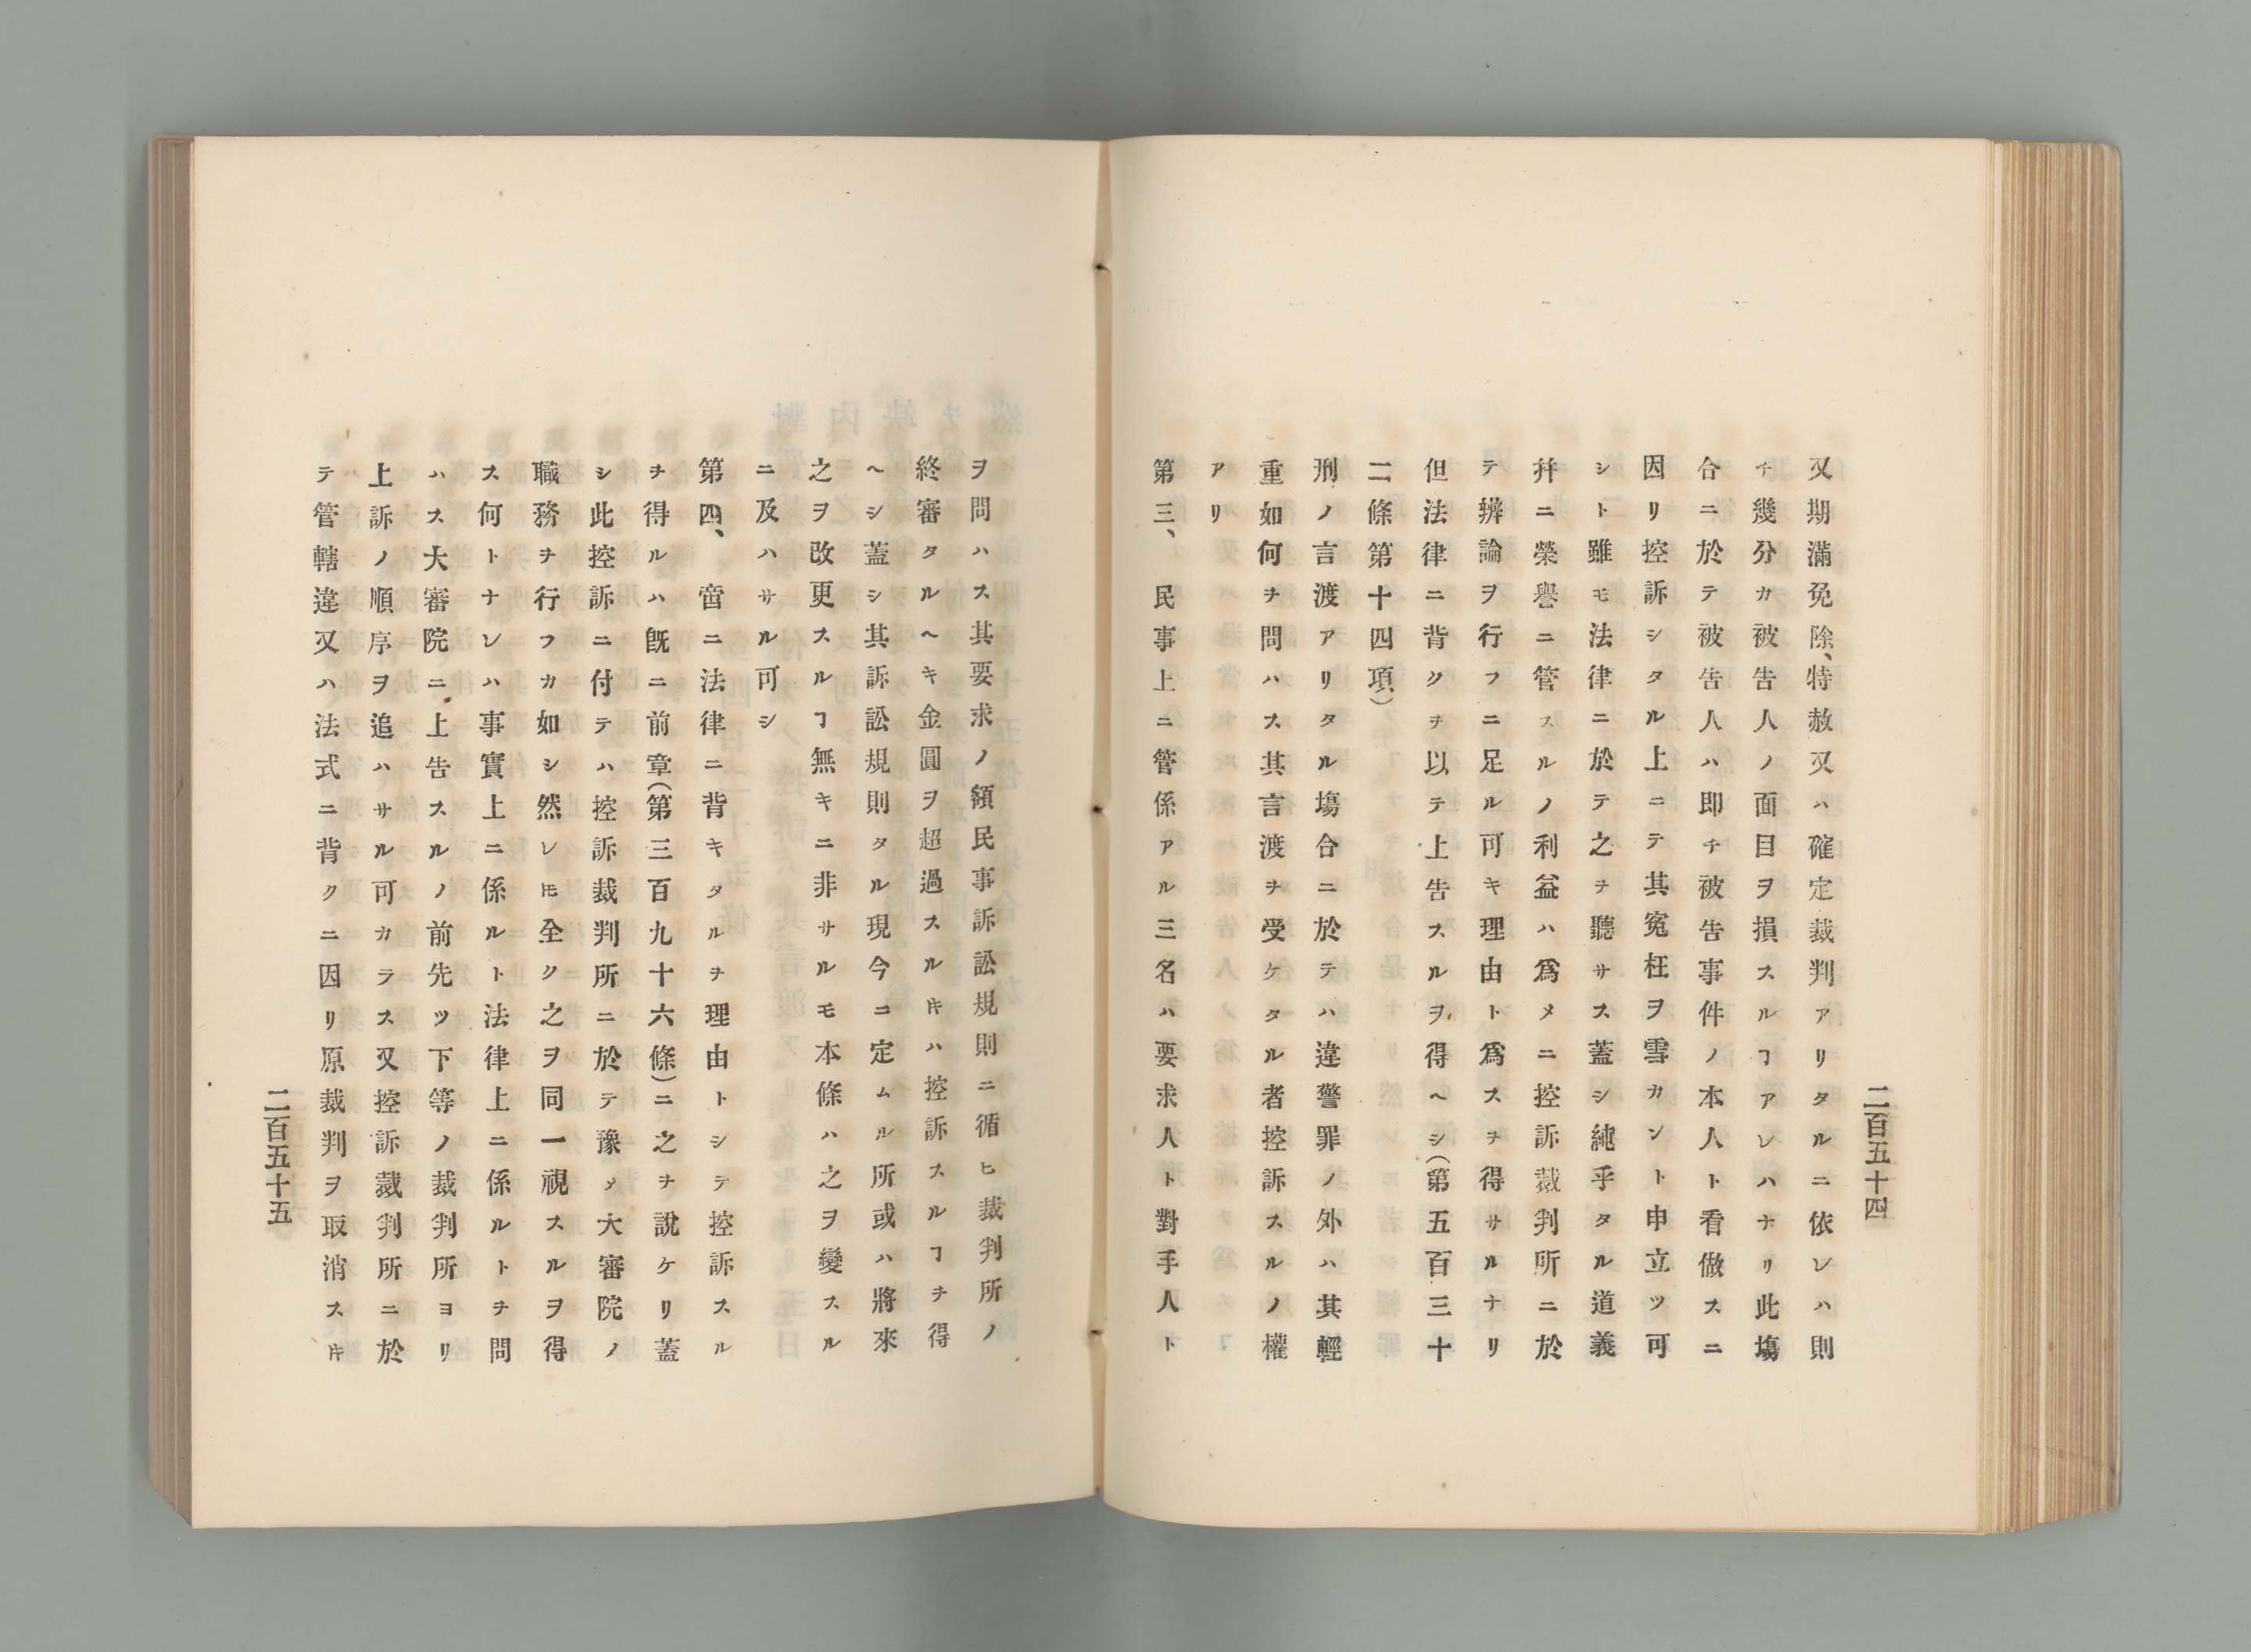 二百五十四
又期滿免除、特赦又ハ確定裁判アリタルニ依レハ則
チ幾分カ被告人ノ面目ヲ損スルヿアレハナリ此塲
合ニ於テ被告人ハ即チ被告事件ノ本人ト看做スニ
因リ控訴シタル上ニテ其寃枉ヲ雪カント申立ツ可
シト雖モ法律ニ於テ之チ聽サス蓋シ純乎タル道義
并ニ榮譽ニ管スルノ利益ハ爲メニ控訴裁判所ニ於
テ辨論ヲ行フニ足ル可キ理由ト爲スヲ得サルナリ
但法律ニ背クヲ以テ上告スルヲ得ヘシ(第五百三十
二條第十四項)
刑ノ言渡アリタル塲合ニ於テハ違警罪ノ外ハ其輕
重如何チ問ハス其言渡ヲ受ケタル者控訴スルノ權
アリ
第三、民事上ニ管係アル三名ハ要求人ト對手人ト
ヲ問ハス其要求ノ額民事訴訟規則ニ循ヒ裁判所ノ
終審タルヘキ金圓ヲ超過スルキハ控訴スルヿヲ得
ヘシ蓋シ其訴訟規則タル現今ニ定ムル所或ハ將來
之ヲ改更スルヿ無キニ非サルモ本條ハ之ヲ變スル
ニ及ハサル可シ
第四、啻ニ法律ニ背キタルヲ理由トシテ控訴スル
チ得ルハ旣ニ前章(第三百九十六條)ニ之チ說ケリ蓋
シ此控訴ニ付テハ控訴裁判所ニ於テ豫メ大審院ノ
職務ヲ行フカ如シ然レ𪜈全ク之ヲ同一視スルヲ得
ス何トナレハ事實上ニ係ルト法律上ニ係ルトチ問
ハス大審院ニ上告スルノ前先ツ下等ノ裁判所ヨリ
上訴ノ順序ヲ追ハサル可カラス又控訴裁判所ニ於
テ管轄違又ハ法式ニ背クニ因リ原裁判ヲ取消スキ
二百五十五